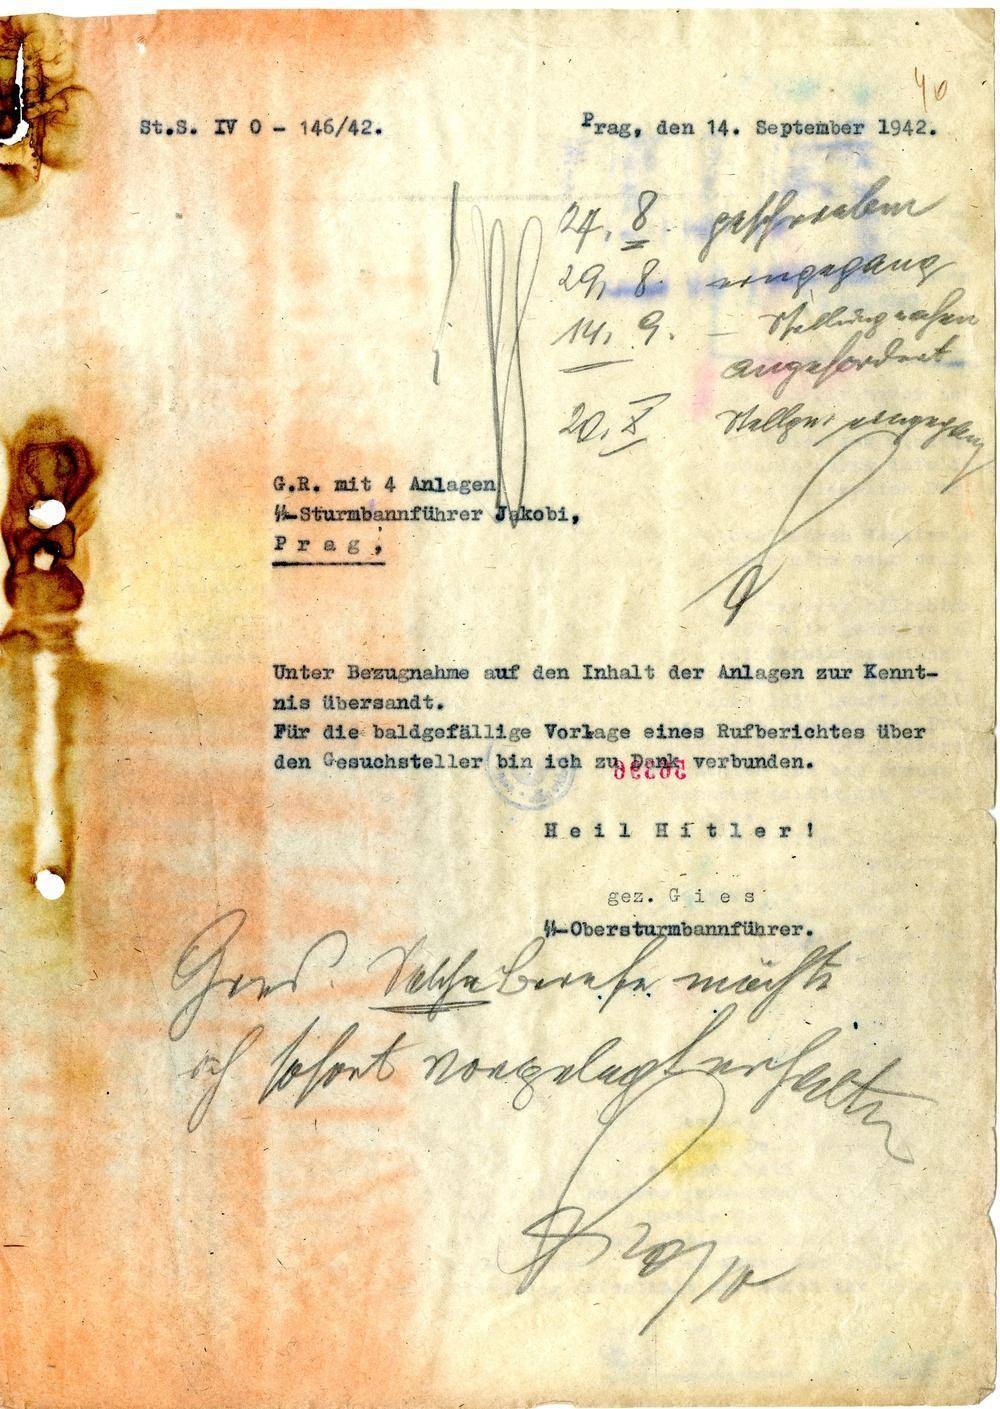 40
St.S. IV O - 146/42.
Prag, den 14. September 1942.
24. 8. geschrieben
29. 8. eingegang
14. 9. - Stellungnahm
angefordert
20. X. Stellgn. eingegang
G.R. mit 4 Anlagen
SS-Sturmbannführer Jakobi,
P r a g ,
Unter Bezugnahme auf den Inhalt der Anlagen zur Kennt-
nis übersandt.
Für die baldgefällige Vorlage eines Rufberichtes über
den Gesuchsteller bin ich zu Dank verbunden.
H e i l  H i t l e r !
gez. G i e s
SS-Obersturmbannführer.
Gies. Solche möchte
ich sofort vorgelegt erhalten
20/10